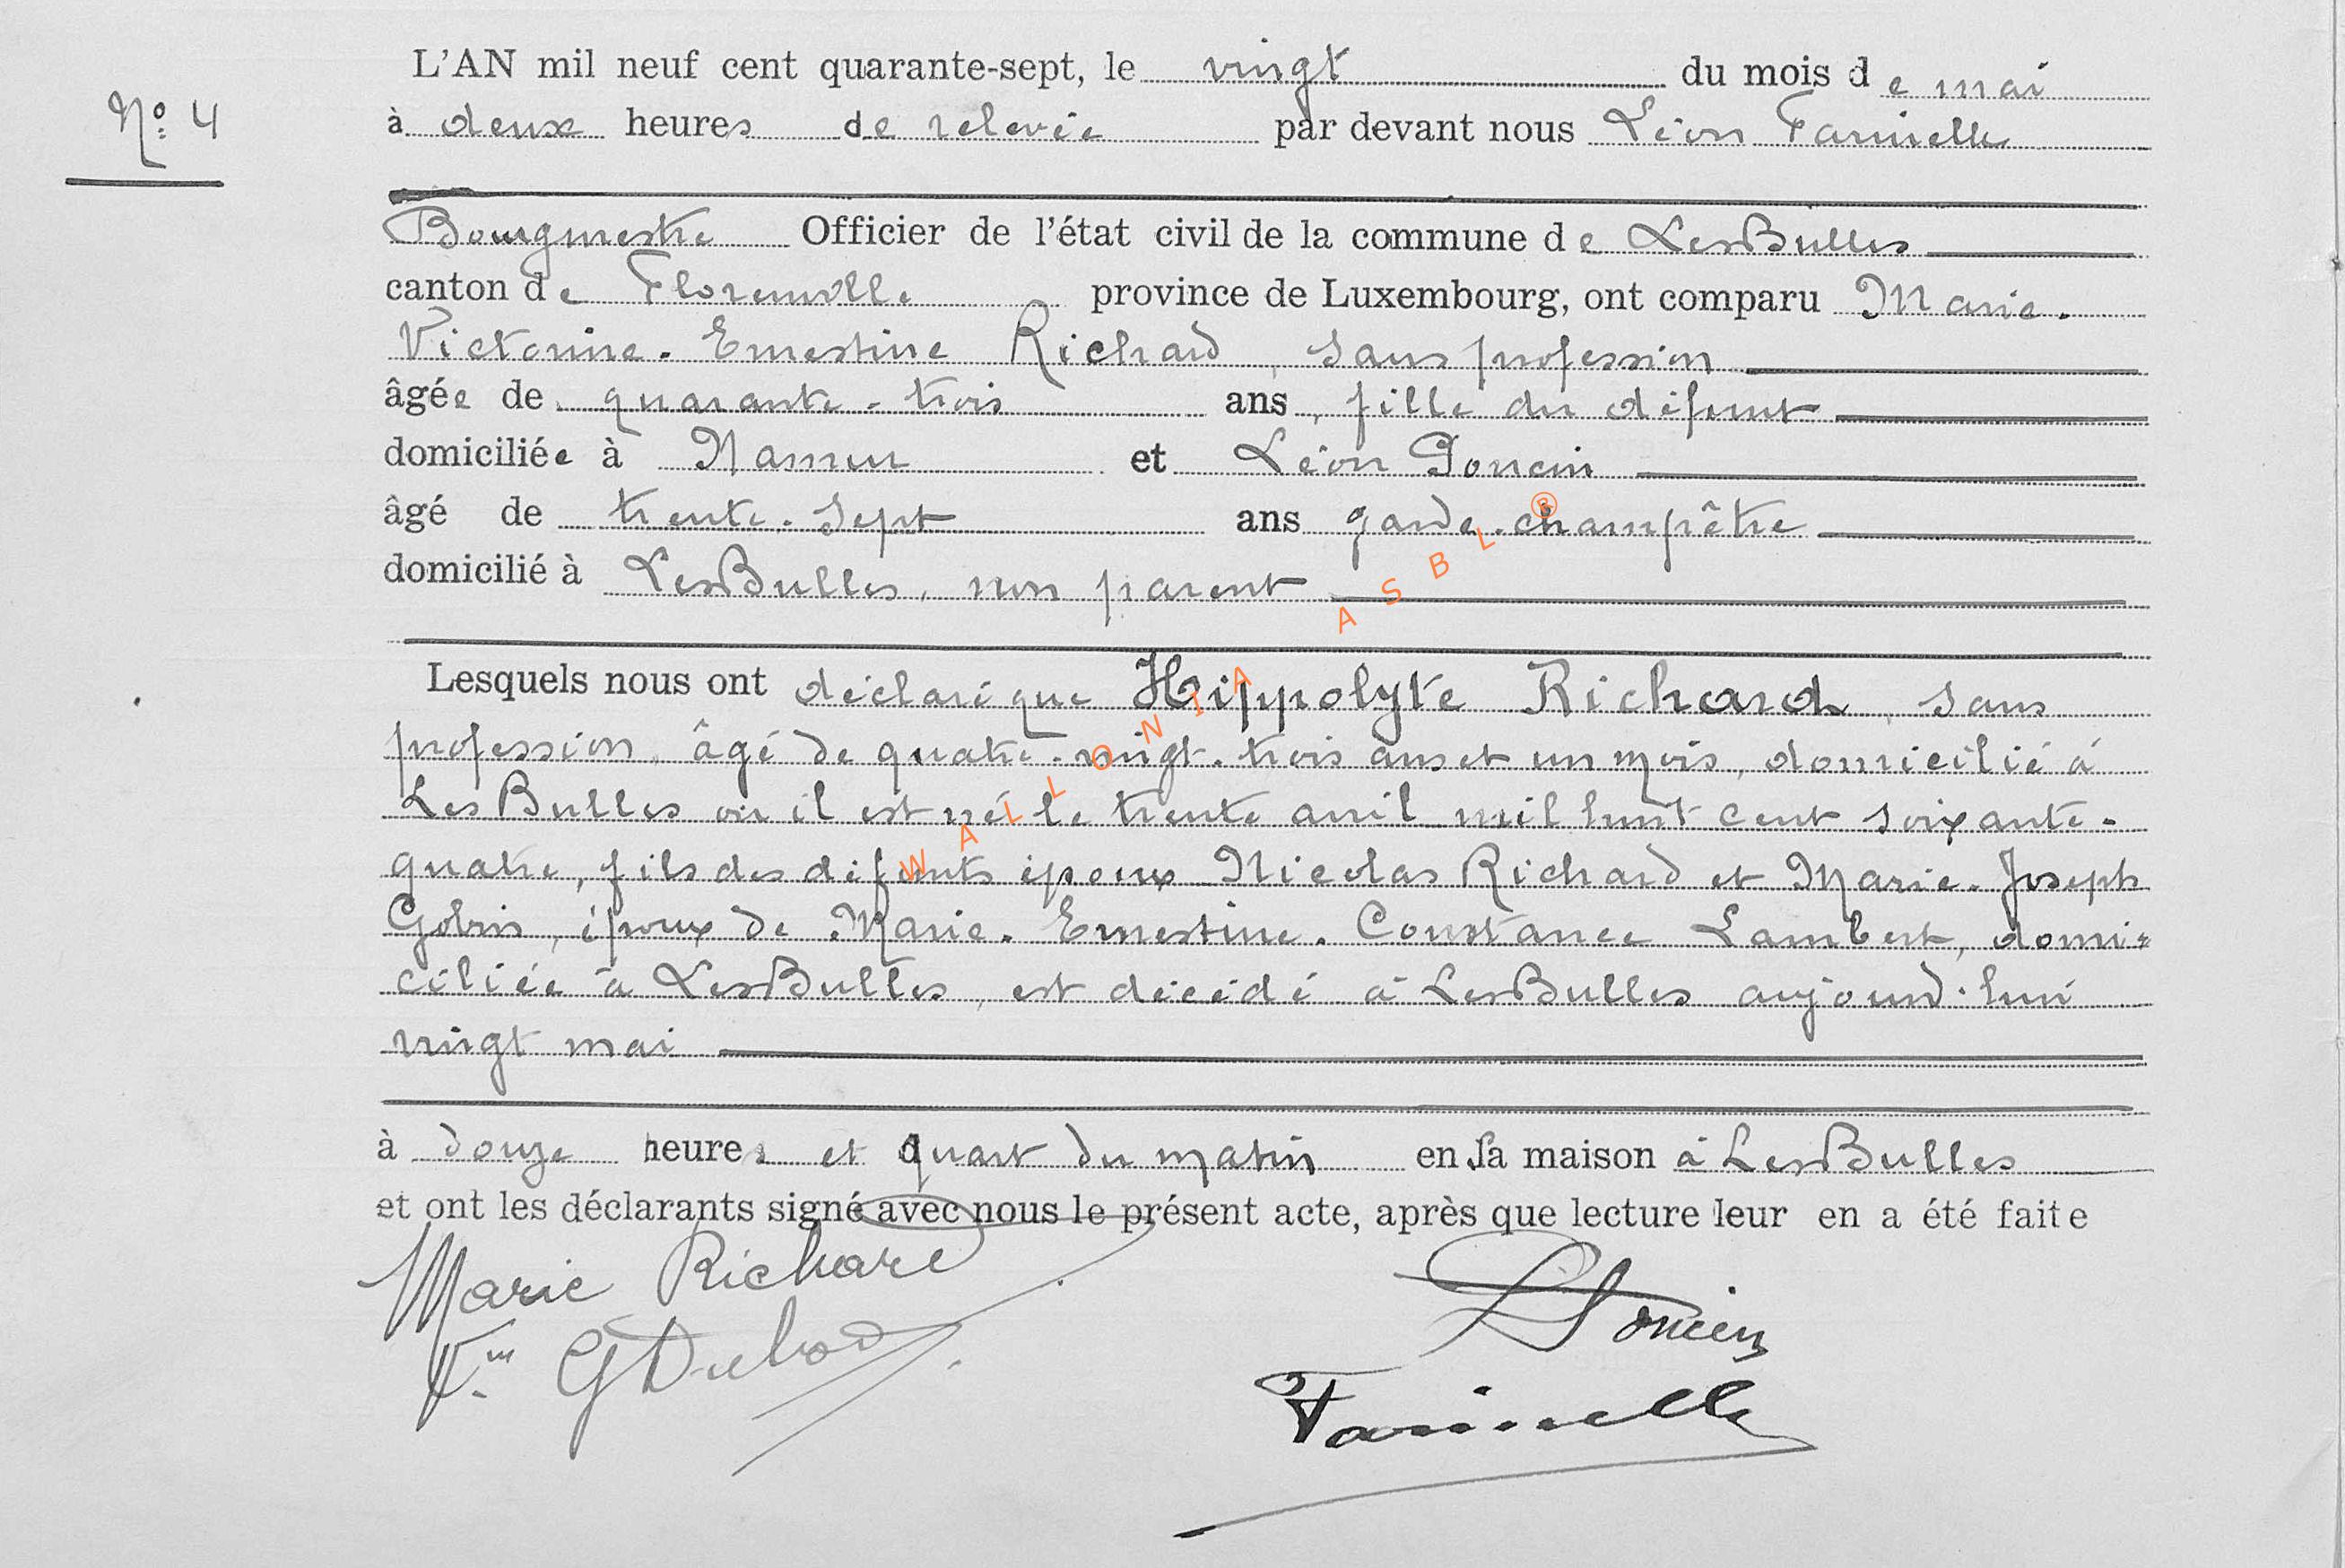 L'AN mil neuf cent quarante-sept, le vingt du mois de mai
N° 4
à deux heures de relevée par devant nous Léon Fanielle
Bourgmestre Officier de l'état civil de la commune de LesBulles
canton de Florenville province de Luxembourg, ont comparu Marie-
Victorine-Ernestine Richard, sans profession
âgée de quarante-trois ans, fille du défunt
domiciliée à Namur et Léon Poncin
âgé de trente-sept ans garde-champêtre
domicilié à LesBulles, non parent
Lesquels nous ont déclaré que Hippolyte Richard, sans
profession, âgé de quatre-vingt-trois ans et un mois, domicilié à
LesBulles où il est né le trente avril mil huit cent soixante-
quatre, fils des défunts époux Nicolas Richard et Marie-Joseph
Gobin, époux de Marie-Ernestine-Constance Lambert, domi-
ciliée à LesBulles, est décédé à LesBulles aujourd'hui
vingt mai
à douze heures et quart du matin en sa maison à LesBulles
et ont les déclarants signé avec nous le présent acte, après que lecture leur en a été faite
Marie Richard
LPoncin
Fanielle
WALLONIA ASBL ®